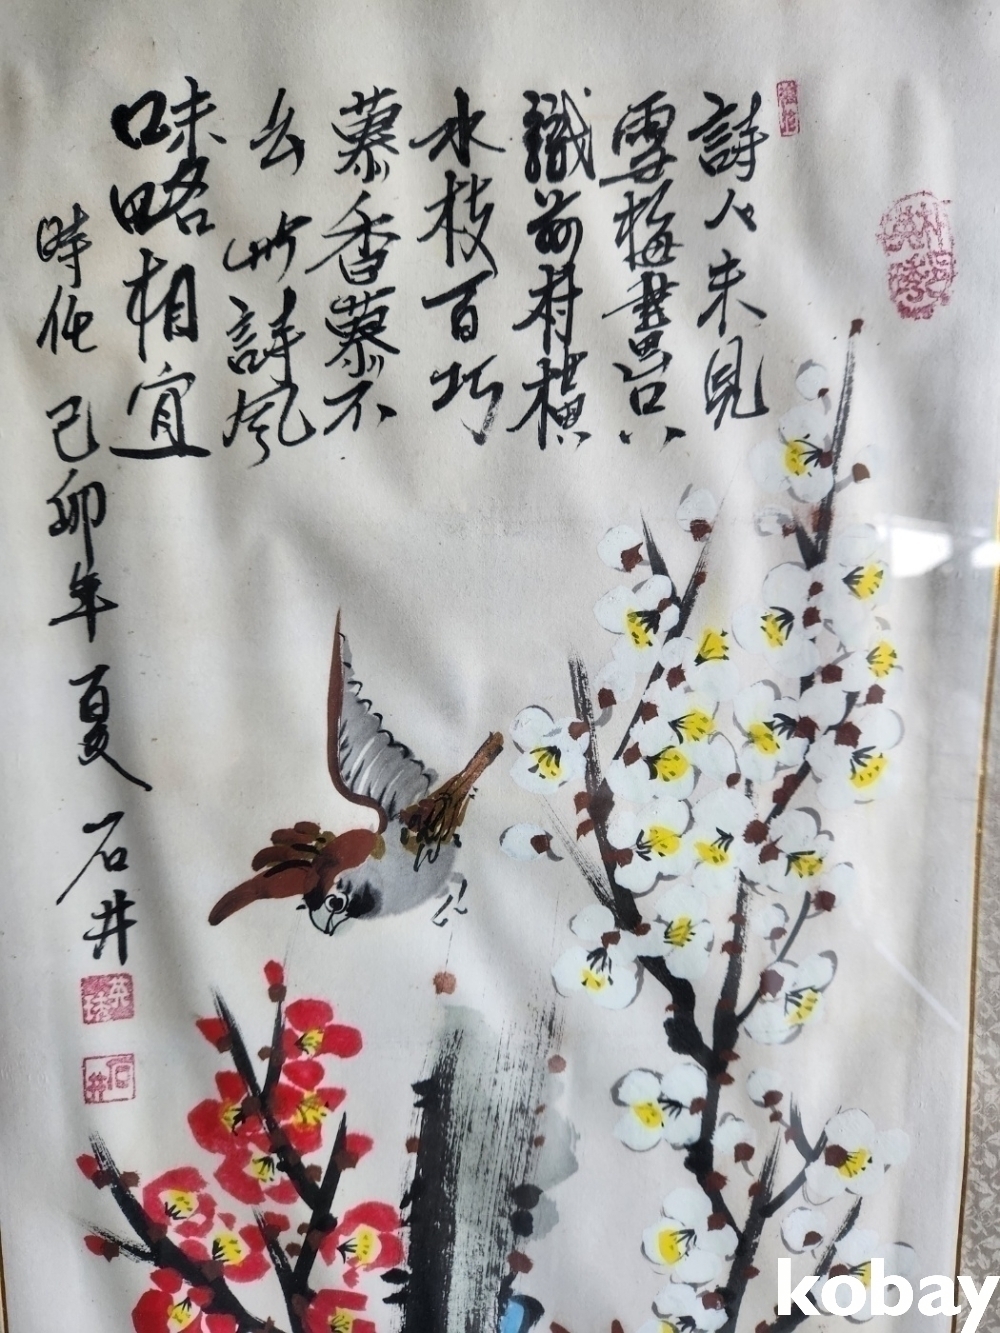 詩人未見
雪梅書只
識前村橫
水枝百巧
慕香慕不
幺竹詩風
味略相宜
時在己卯年夏
石井
石井
kobay